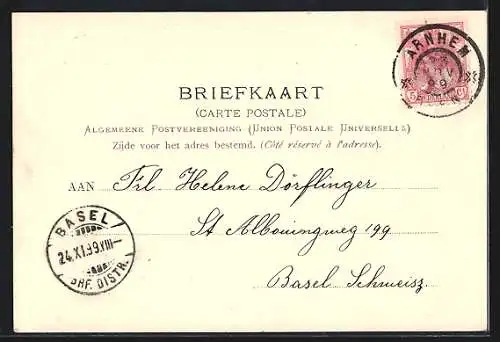 ARNHEM
99
5 Ct
BRIEFKAART
(CARTE POSTALE)
ALGEMEENE POSTVEREENIGING (UNION POSTALE UNIVERSELLE)
Zijde voor het adres bestemd. (Côté réservé à l'adresse).
AAN Frl. Helene Dörflinger
St Albouingweg 199
Basel Schweisz.
BASEL
24.XI.99.XIII-
BRF. DISTR.